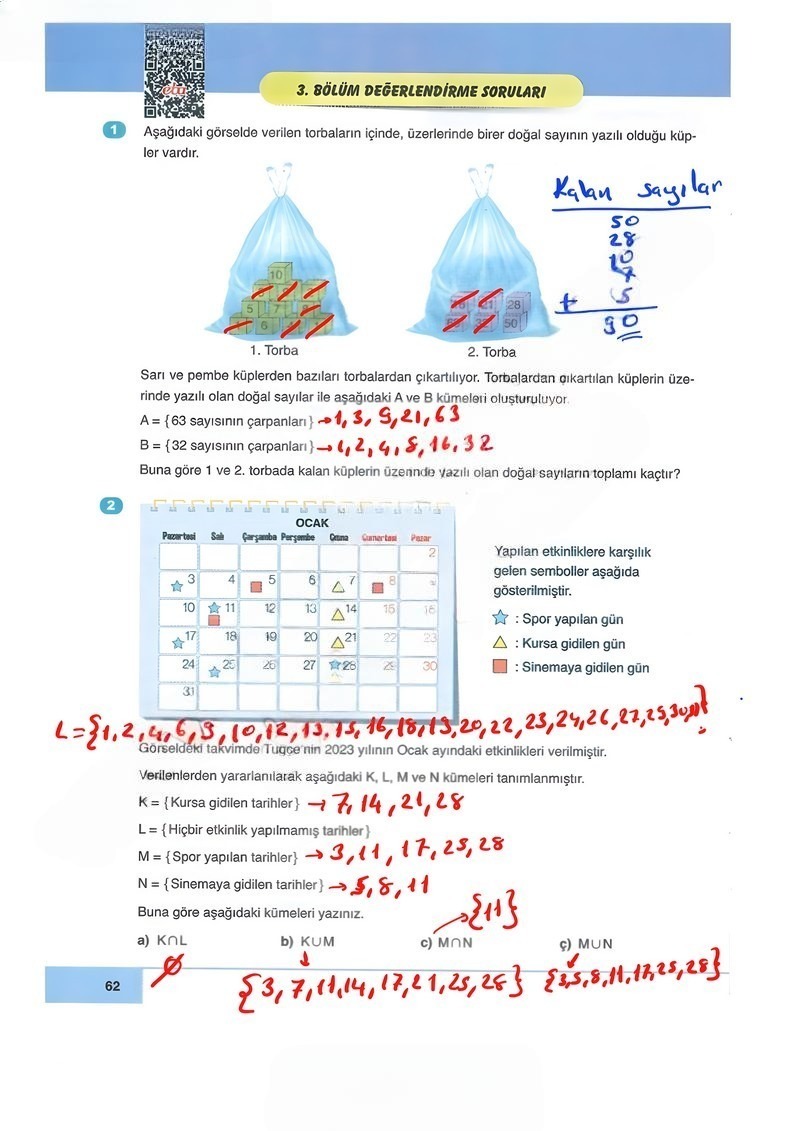 etu
3. BÖLÜM DEĞERLENDİRME SORULARI
1 Aşağıdaki görselde verilen torbaların içinde, üzerlerinde birer doğal sayının yazılı olduğu küp-
ler vardır.
Kalan sayılar
50
28
10
+ 5
90
10
5 7
6
28
50
1. Torba
2. Torba
Sarı ve pembe küplerden bazıları torbalardan çıkartılıyor. Torbalardan çıkartılan küplerin üze-
rinde yazılı olan doğal sayılar ile aşağıdaki A ve B kümeleri oluşturuluyor.
A = {63 sayısının çarpanları} → 1, 3, 9, 21, 63
B = {32 sayısının çarpanları} → 1, 2, 4, 8, 16, 32
Buna göre 1 ve 2. torbada kalan küplerin üzerinde yazılı olan doğal sayıların toplamı kaçtır?
2
OCAK
Pazartesi Salı Çarşamba Perşembe Cuma Cumartesi Pazar
2
3 4 5 6 7 8 9
10 11 12 13 14 15 16
17 18 19 20 21 22 23
24 25 26 27 28 29 30
31
Yapılan etkinliklere karşılık
gelen semboller aşağıda
gösterilmiştir.
: Spor yapılan gün
: Kursa gidilen gün
: Sinemaya gidilen gün
L = {1, 2, 4, 6, 9, 10, 12, 13, 15, 16, 18, 19, 20, 22, 23, 24, 26, 27, 29, 30, 31}
Görseldeki takvimde Tuğçe'nin 2023 yılının Ocak ayındaki etkinlikleri verilmiştir.
Verilenlerden yararlanılarak aşağıdaki K, L, M ve N kümeleri tanımlanmıştır.
K = {Kursa gidilen tarihler} → 7, 14, 21, 28
L = {Hiçbir etkinlik yapılmamış tarihler}
M = {Spor yapılan tarihler} → 3, 11, 17, 25, 28
N = {Sinemaya gidilen tarihler} → 5, 8, 11
Buna göre aşağıdaki kümeleri yazınız.
{11}
a) K∩L b) K∪M c) M∩N ç) M∪N
∅ {3, 7, 11, 14, 17, 21, 25, 28} {3, 5, 8, 11, 17, 25, 28}
62